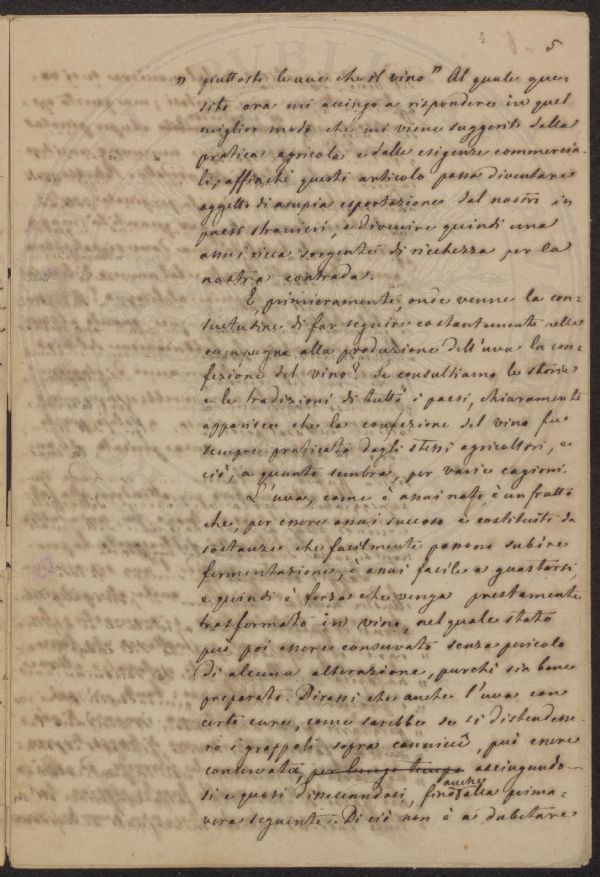 5
" piuttosto le uve che il vino" Al quale que=
sito ora mi accingo a rispondere in quel
miglior modo che mi viene suggerito dalla
pratica agricola e dalle esigenze commercia=
li, affinchè questo articolo possa diventare
oggetto di ampia esportazione dal nostro in
paesi stranieri, e divenire quindi una
assai ricca sorgente di ricchezza per la
nostra contrada.
E, primieramente, onde venne la con=
suetudine di far seguire costantemente nella
campagna alla produzione dell'uva la con=
fezione del vino? Se consultiamo le storie
e le tradizioni di tutti i paesi, chiaramente
apparisce che la confezione del vino fu
sempre praticata dagli stessi agricoltori, e
ciò, a quanto sembra, per varie cagioni.
L'uva, come è assai noto, è un frutto
che, per essere assai succoso e costituito da
sostanze che facilmente possono subire
fermentazione, è assai facile a guastarsi,
e quindi è forza che venga prestamente
trasformato in vino, nel quale stato
può poi essere conservato senza pericolo
di alcuna alterazione, purchè sia bene
preparato. Dirassi che anche l'uva con
certe cure, come sarebbe se si distendesse=
ro i grappoli sopra cannicci, può essere
conservata, per lungo tempo asciugando=
si e quasi disseccandosi, fino anche alla prima=
vera seguente. Di ciò non è a dubitare